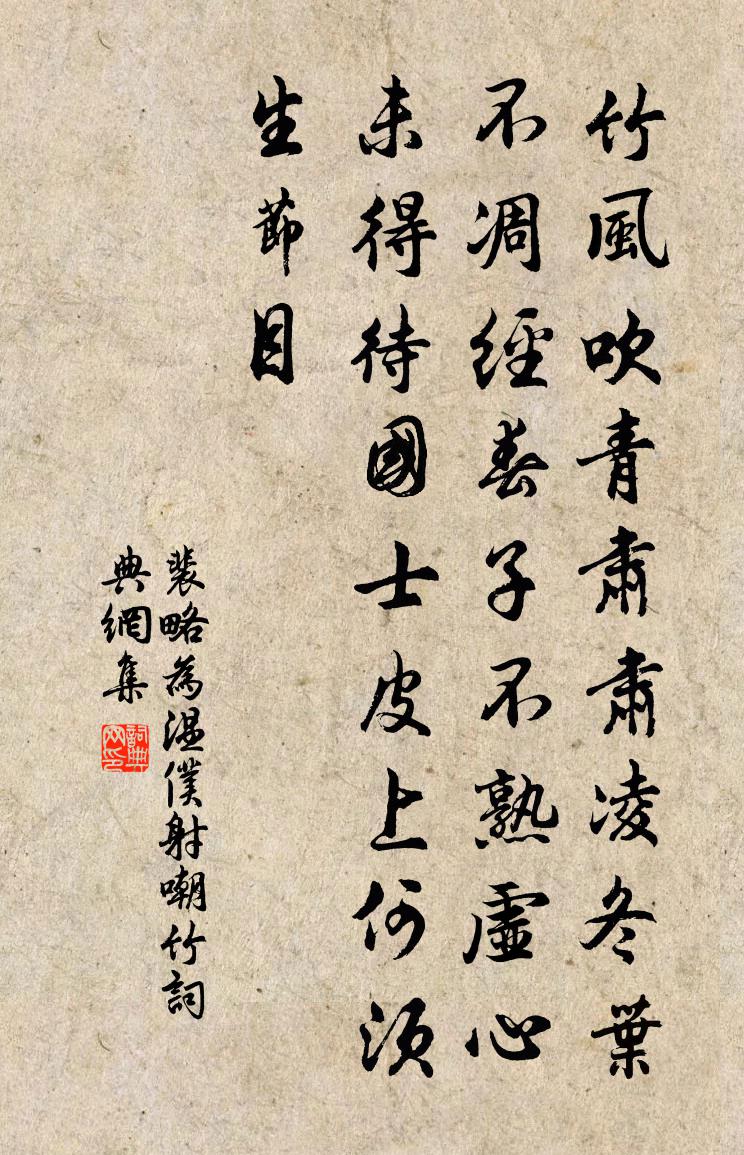 竹風吹青肅肅凌冬葉
不凋經春子不熟虛心
未得待國士皮上何須
生節目
裴略為溫僕射嘲竹詞
典網集
詞典网印